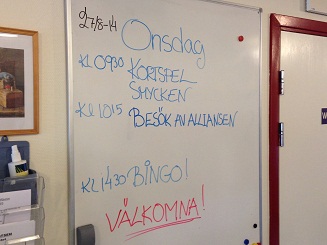 27/8-14
Onsdag
KL 0930 KORTSPEL
SMYCKEN
KL 1015 BESÖK AV ALLIANSEN
KL 1430 BINGO!
VÄLKOMNA!